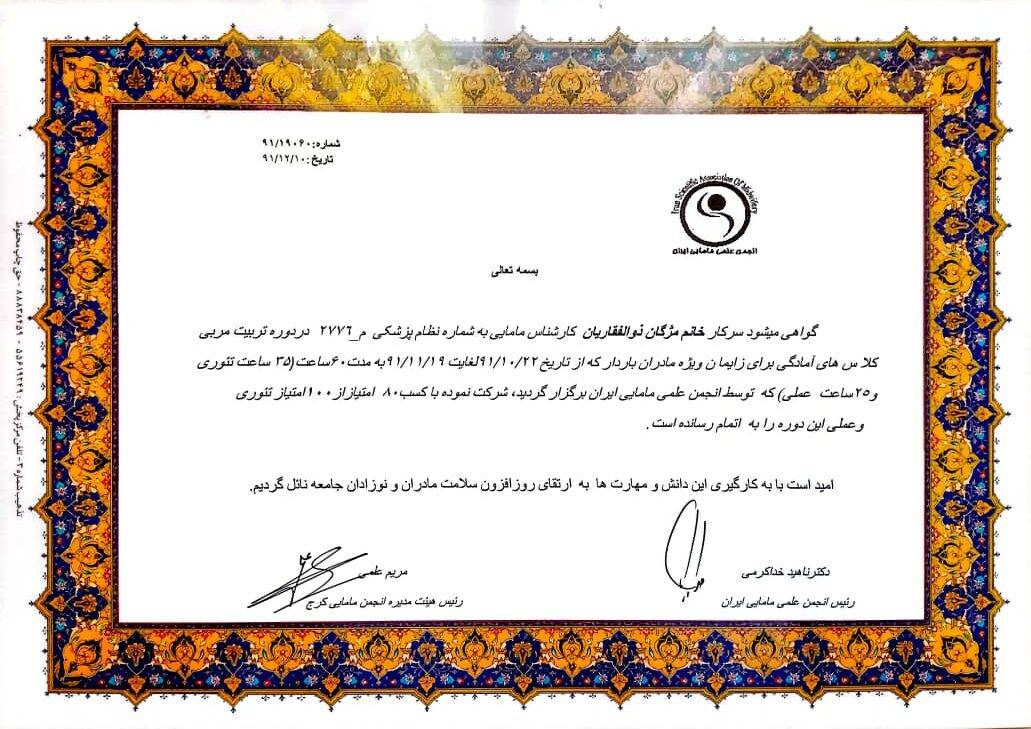 شماره:۹۱/۱۹۰۶۰
تاریخ:۹۱/۱۲/۱۰
Iran Scientific Association Of Midwifery
انجمن علمی مامایی ایران
بسمه تعالی
گواهی میشود سرکار خانم مژگان ذوالفقاریان کارشناس مامایی به شماره نظام پزشکی م_۲۷۷۶ دردوره تربیت مربی
کلا س های آمادگی برای زایما ن ویژه مادران باردار که از تاریخ ۹۱/۱۰/۲۲لغایت ۹۱/۱۱/۱۹به مدت۶۰ساعت(۳۵ ساعت تئوری
و۲۵ساعت عملی) که توسط انجمن علمی مامایی ایران برگزار گردید، شرکت نموده با کسب۸۰ امتیازاز۱۰۰امتیاز تئوری
وعملی این دوره را به اتمام رسانده است.
امید است با به کارگیری این دانش و مهارت ها به ارتقای روزافزون سلامت مادران و نوزادان جامعه نائل گردیم.
دکترناهید خداکرمی
رئیس انجمن علمی مامایی ایران
مریم علمی
رئیس هیئت مدیره انجمن مامایی کرج
تذهیب شماره ۳ - تلفن مرکز پخش: ۵۵۶۱۹۲۴۹ - ۸۸۸۳۸۴۵۹ - حق چاپ محفوظ